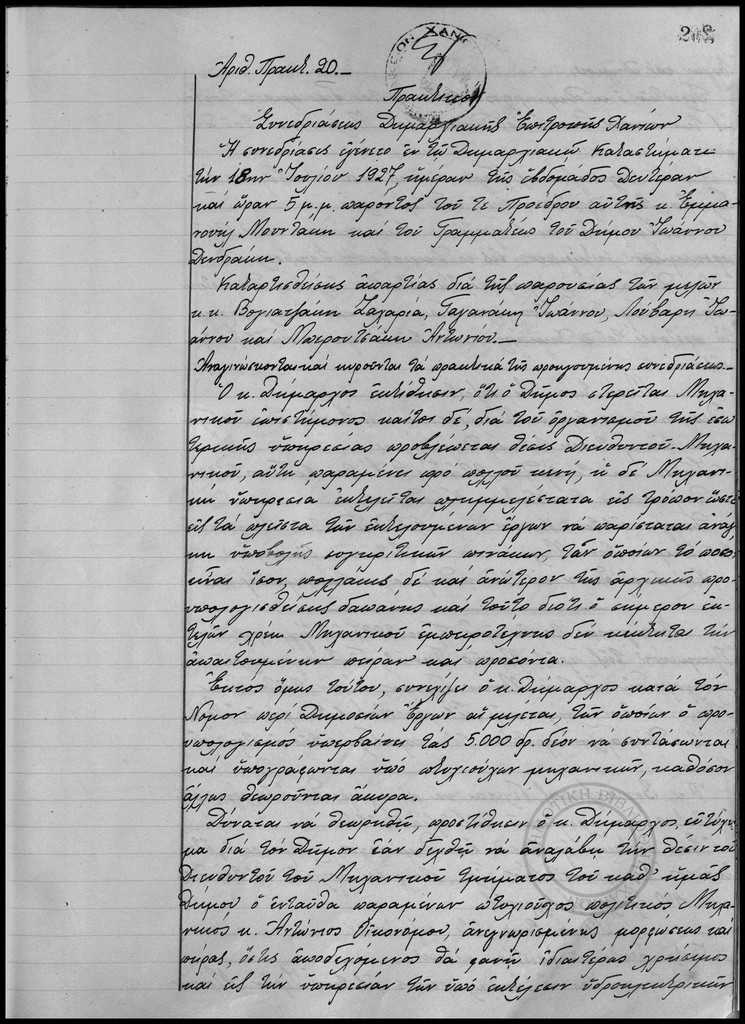 Ἀριθ. Πρακτ. 20.—
Πρακτικὸν
Συνεδριάσεως Δημαρχιακῆς Ἐπιτροπῆς Χανίων
Ἡ συνεδρίασις ἐγένετο ἐν τῷ Δημαρχιακῷ Καταστήματι
τὴν 18ην Ἰουλίου 1927, ἡμέραν τῆς ἑβδομάδος Δευτέραν
καὶ ὥραν 5 μ.μ. παρόντος τοῦ τε Προέδρου αὐτῆς κ. Ἐμμα-
νουὴλ Μουντάκη καὶ τοῦ Γραμματέως τοῦ Δήμου Ἰωάννου
Δενδράκη.
Καταρτισθείσης ἀπαρτίας διὰ τῆς παρουσίας τῶν μελῶν
κ.κ. Βογιατζάκη Ζαχαρία, Γαγανάκη Ἰωάννου, Λούβαρη Ἰω-
άννου καὶ Μπερουτσάκη Ἀντωνίου.—
Ἀναγινώσκονται καὶ κυροῦνται τὰ πρακτικὰ τῆς προηγουμένης συνεδριάσεως.—
Ὁ κ. Δήμαρχος ἐκτίθησιν, ὅτι ὁ Δῆμος στερεῖται Μηχα-
νικοῦ ἐπιστήμονος καίτοι δέ, διὰ τοῦ ὀργανισμοῦ τῆς ἐσω-
τερικῆς ὑπηρεσίας προβλέπεται θέσις Διευθυντοῦ-Μηχα-
νικοῦ, αὕτη παραμένει πρὸ πολλοῦ κενή, ἡ δὲ Μηχανι-
κὴ ὑπηρεσία ἐκτελεῖται πλημμελέστατα εἰς τρόπον ὥστε
εἰς τὰ πλεῖστα τῶν ἐκτελουμένων ἔργων νὰ παρίσταται ἀνάγ-
κη ὑποβολῆς συγκριτικῶν πινάκων, τῶν ὁποίων τὸ ποσὸν
εἶναι ἴσον, πολλάκις δὲ καὶ ἀνώτερον τῆς ἀρχικῆς προ-
ϋπολογισθείσης δαπάνης καὶ τοῦτο διότι ὁ σήμερον ἐκ-
τελῶν χρέη Μηχανικοῦ ἐμπειροτέχνης δὲν κέκτηται τὴν
ἀπαιτουμένην πεῖραν καὶ προσόντα.
Ἐκτὸς ὅμως τούτου, συνεχίζει ὁ κ. Δήμαρχος κατὰ τὸν
Νόμον περὶ Δημοσίων Ἔργων αἱ μελέται, τῶν ὁποίων ὁ προ-
ϋπολογισμὸς ὑπερβαίνει τὰς 5.000 δρ. δέον νὰ συντάσσωνται
καὶ ὑπογράφωνται ὑπὸ πτυχιούχων μηχανικῶν, καθόσον
ἄλλως θεωροῦνται ἄκυροι.
Δύναται νὰ θεωρηθῇ, προστίθησιν ὁ κ. Δήμαρχος, εὐτύχη-
μα διὰ τὸν Δῆμον ἐὰν δεχθῇ νὰ ἀναλάβῃ τὴν θέσιν τοῦ
Διευθυντοῦ τοῦ Μηχανικοῦ τμήματος τοῦ καθ' ἡμᾶς
Δήμου ὁ ἐνταῦθα παραμένων πτυχιοῦχος πολιτικὸς Μηχα-
νικὸς κ. Ἀντώνιος Οἰκονόμου, ἀνεγνωρισμένης μορφώσεως καὶ
πείρας, ὅστις ἀποδεχόμενος θὰ φανῇ ἰδιαιτέρως χρήσιμος
καὶ εἰς τὴν ὑπηρεσίαν τῶν ὑπὸ ἐκτέλεσιν ὑδροηλεκτρικῶν